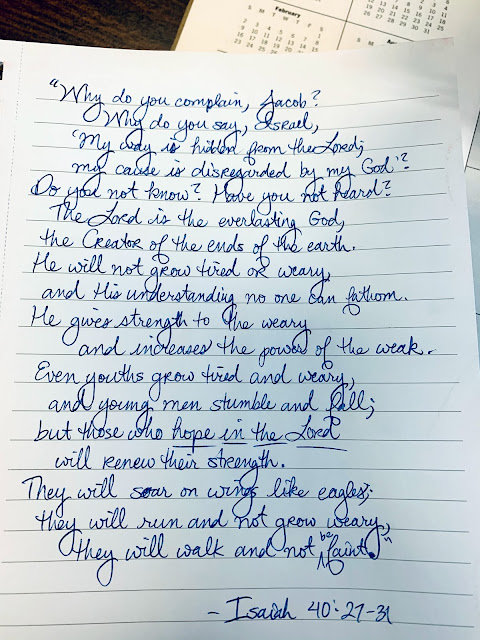 February
S M T W T F S
"Why do you complain, Jacob?
Why do you say, Israel,
'My way is hidden from the Lord;
my cause is disregarded by my God'?
Do you not know? Have you not heard?
The Lord is the everlasting God,
the Creator of the ends of the earth.
He will not grow tired or weary,
and His understanding no one can fathom.
He gives strength to the weary
and increases the power of the weak.
Even youths grow tired and weary,
and young men stumble and fall;
but those who hope in the Lord
will renew their strength.
They will soar on wings like eagles;
they will run and not grow weary,
they will walk and not be faint."
- Isaiah 40:27-31